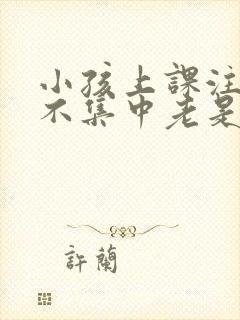 小孩上課注
不集中老是
許蘭